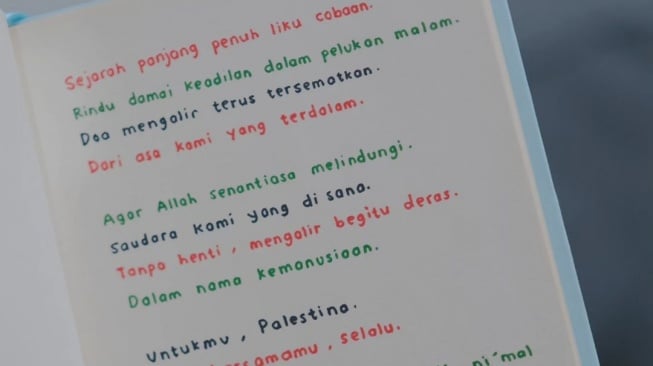 Sejarah panjang penuh liku cobaan.
Rindu damai keadilan dalam pelukan malam.
Doa mengalir terus tersematkan.
Dari asa kami yang terdalam.
Agar Allah senantiasa melindungi.
Saudara kami yang di sana.
Tanpa henti, mengalir begitu deras.
Dalam nama kemanusiaan.
Untukmu, Palestina.
selalu.